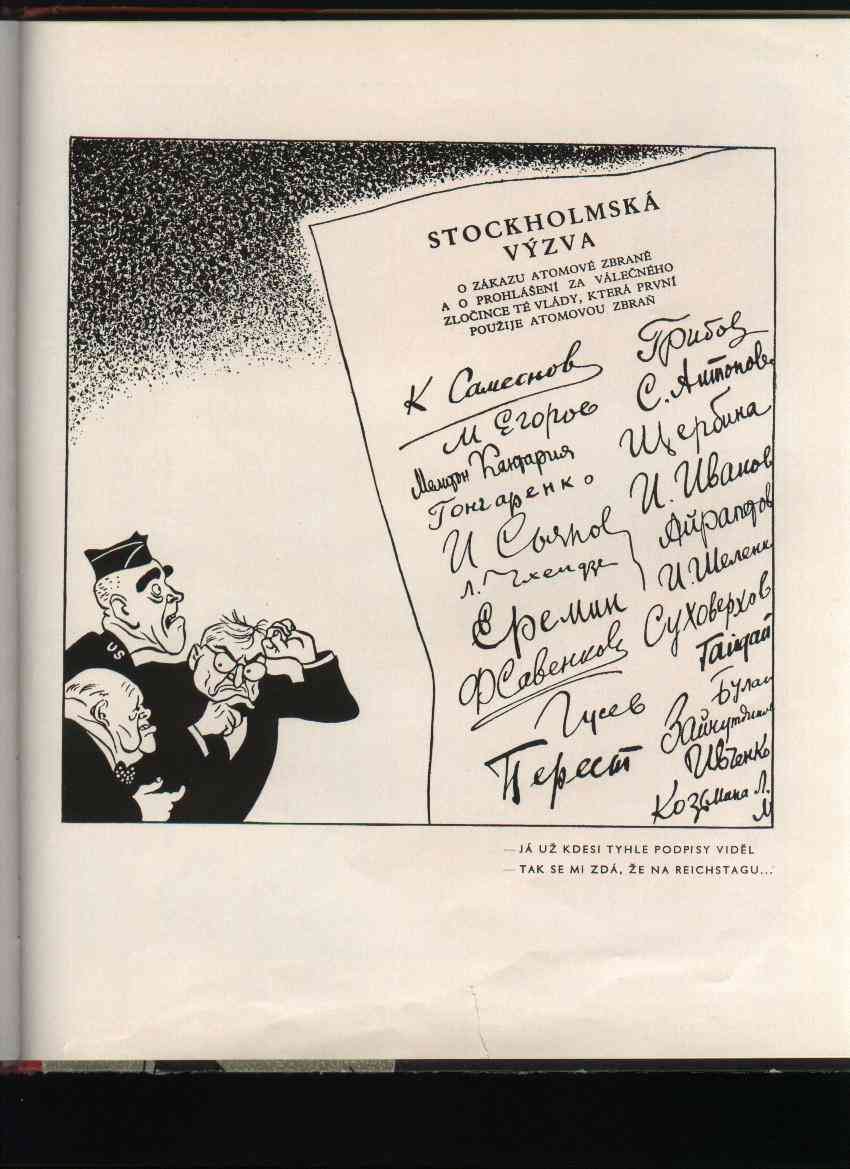 STOCKHOLMSKÁ
VÝZVA
O ZÁKAZU ATOMOVÉ ZBRANĚ
A O PROHLÁŠENÍ ZA VÁLEČNÉHO
ZLOČINCE TÉ VLÁDY, KTERÁ PRVNÍ
POUŽIJE ATOMOVOU ZBRAŇ
К Самеснов
М Егоров
Мелитон Кантария
Гончаренко
И Сьянов
Л.
Еремин
Ф Савенков
Гусев
Перест
Грибов
С. Антонов
Щербина
И. Иванов
Айрапетов
И. Шеленк
Суховерхов
Гайдай
Булат
Ивченко
Козьмина Л.
М
US
— JÁ UŽ KDESI TYHLE PODPISY VIDĚL
— TAK SE MI ZDÁ, ŽE NA REICHSTAGU...